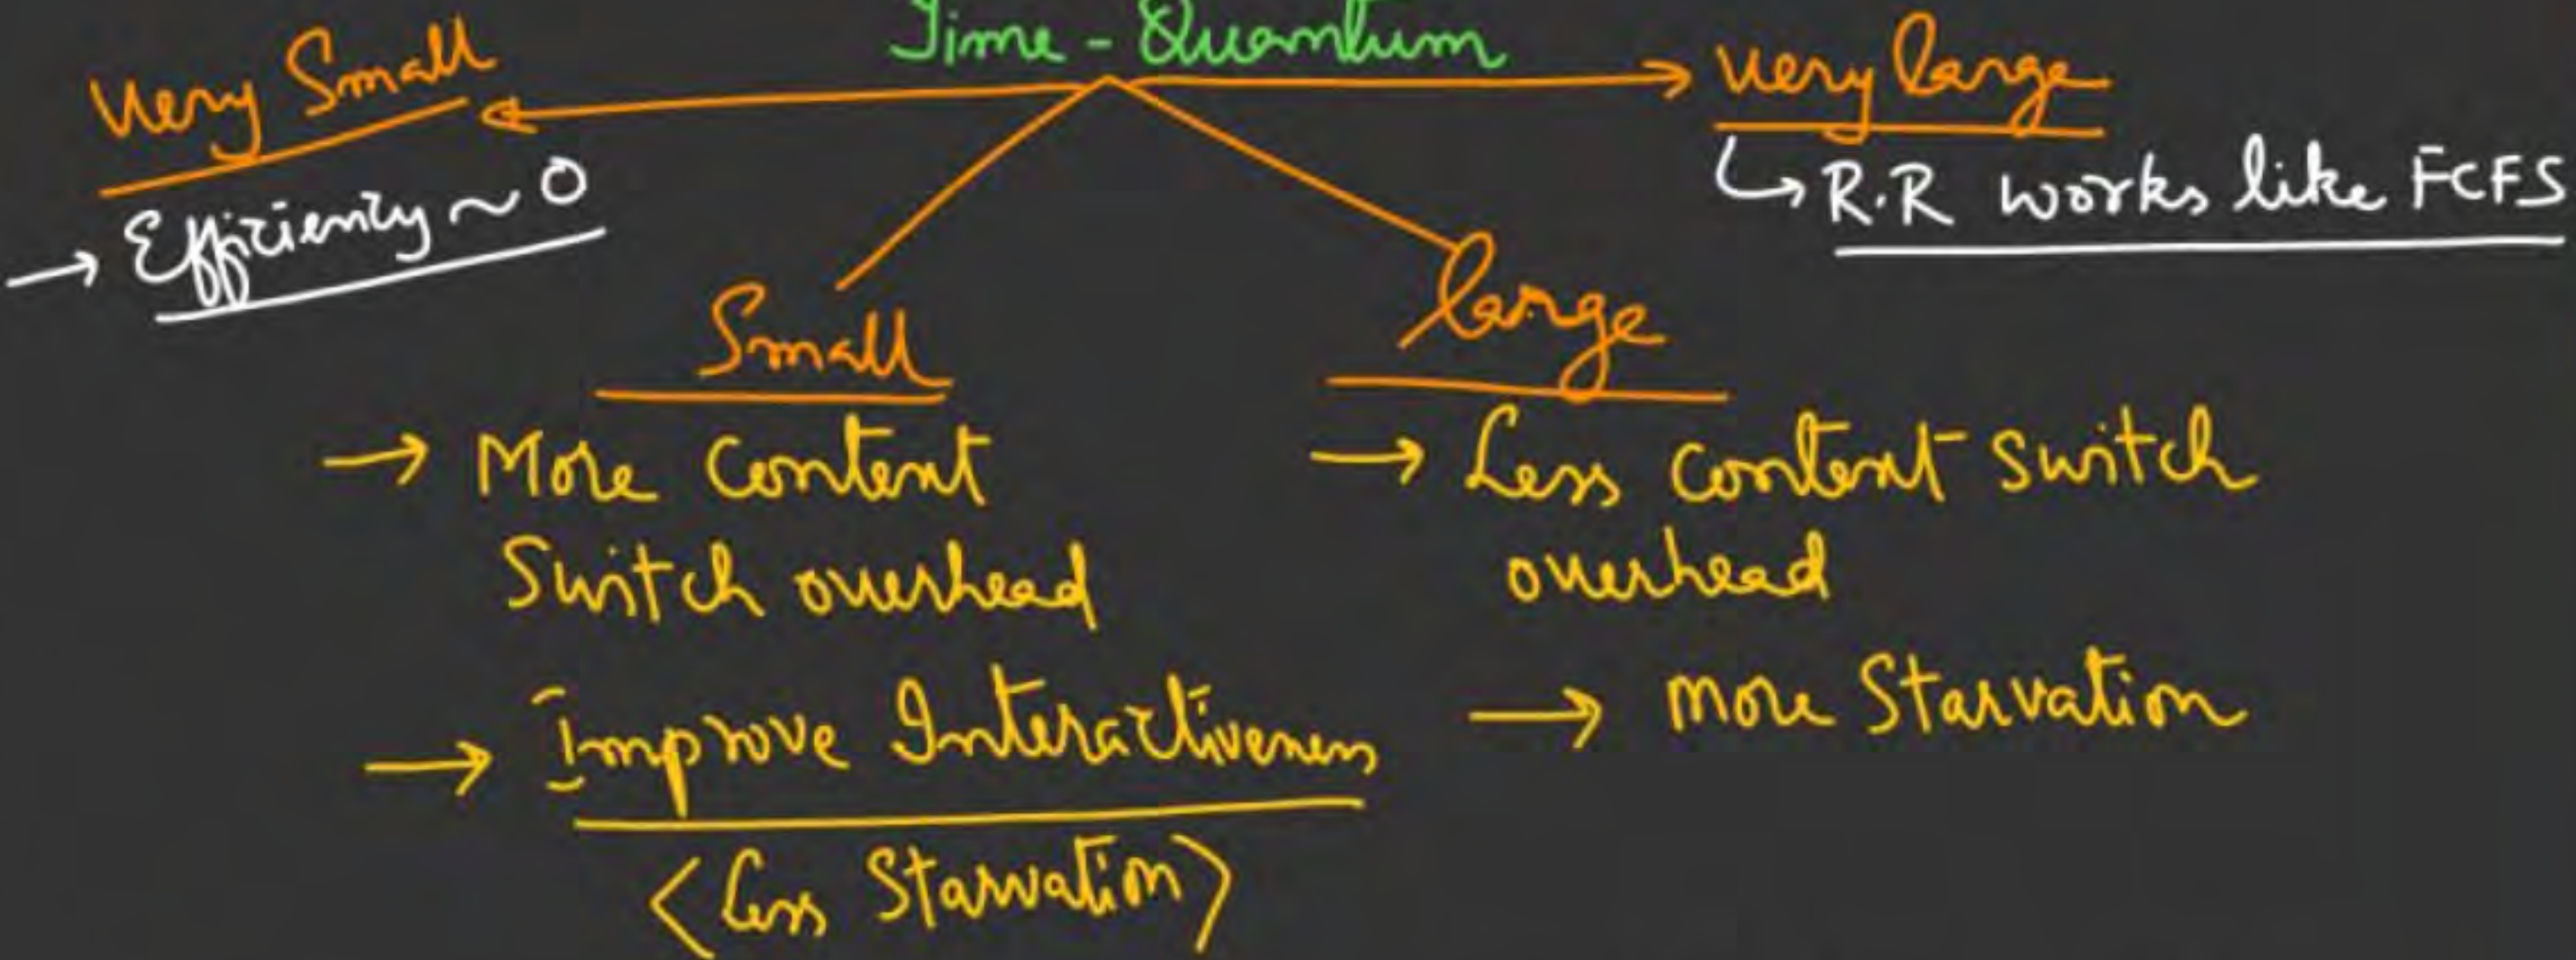 Time - Quantum
Very Small
→ Efficiency ~ 0
very large
↳ R.R works like FCFS
Small
→ More Context
Switch overhead
→ Improve Interactiveness
<Less Starvation>
large
→ Less context switch
overhead
→ More Starvation